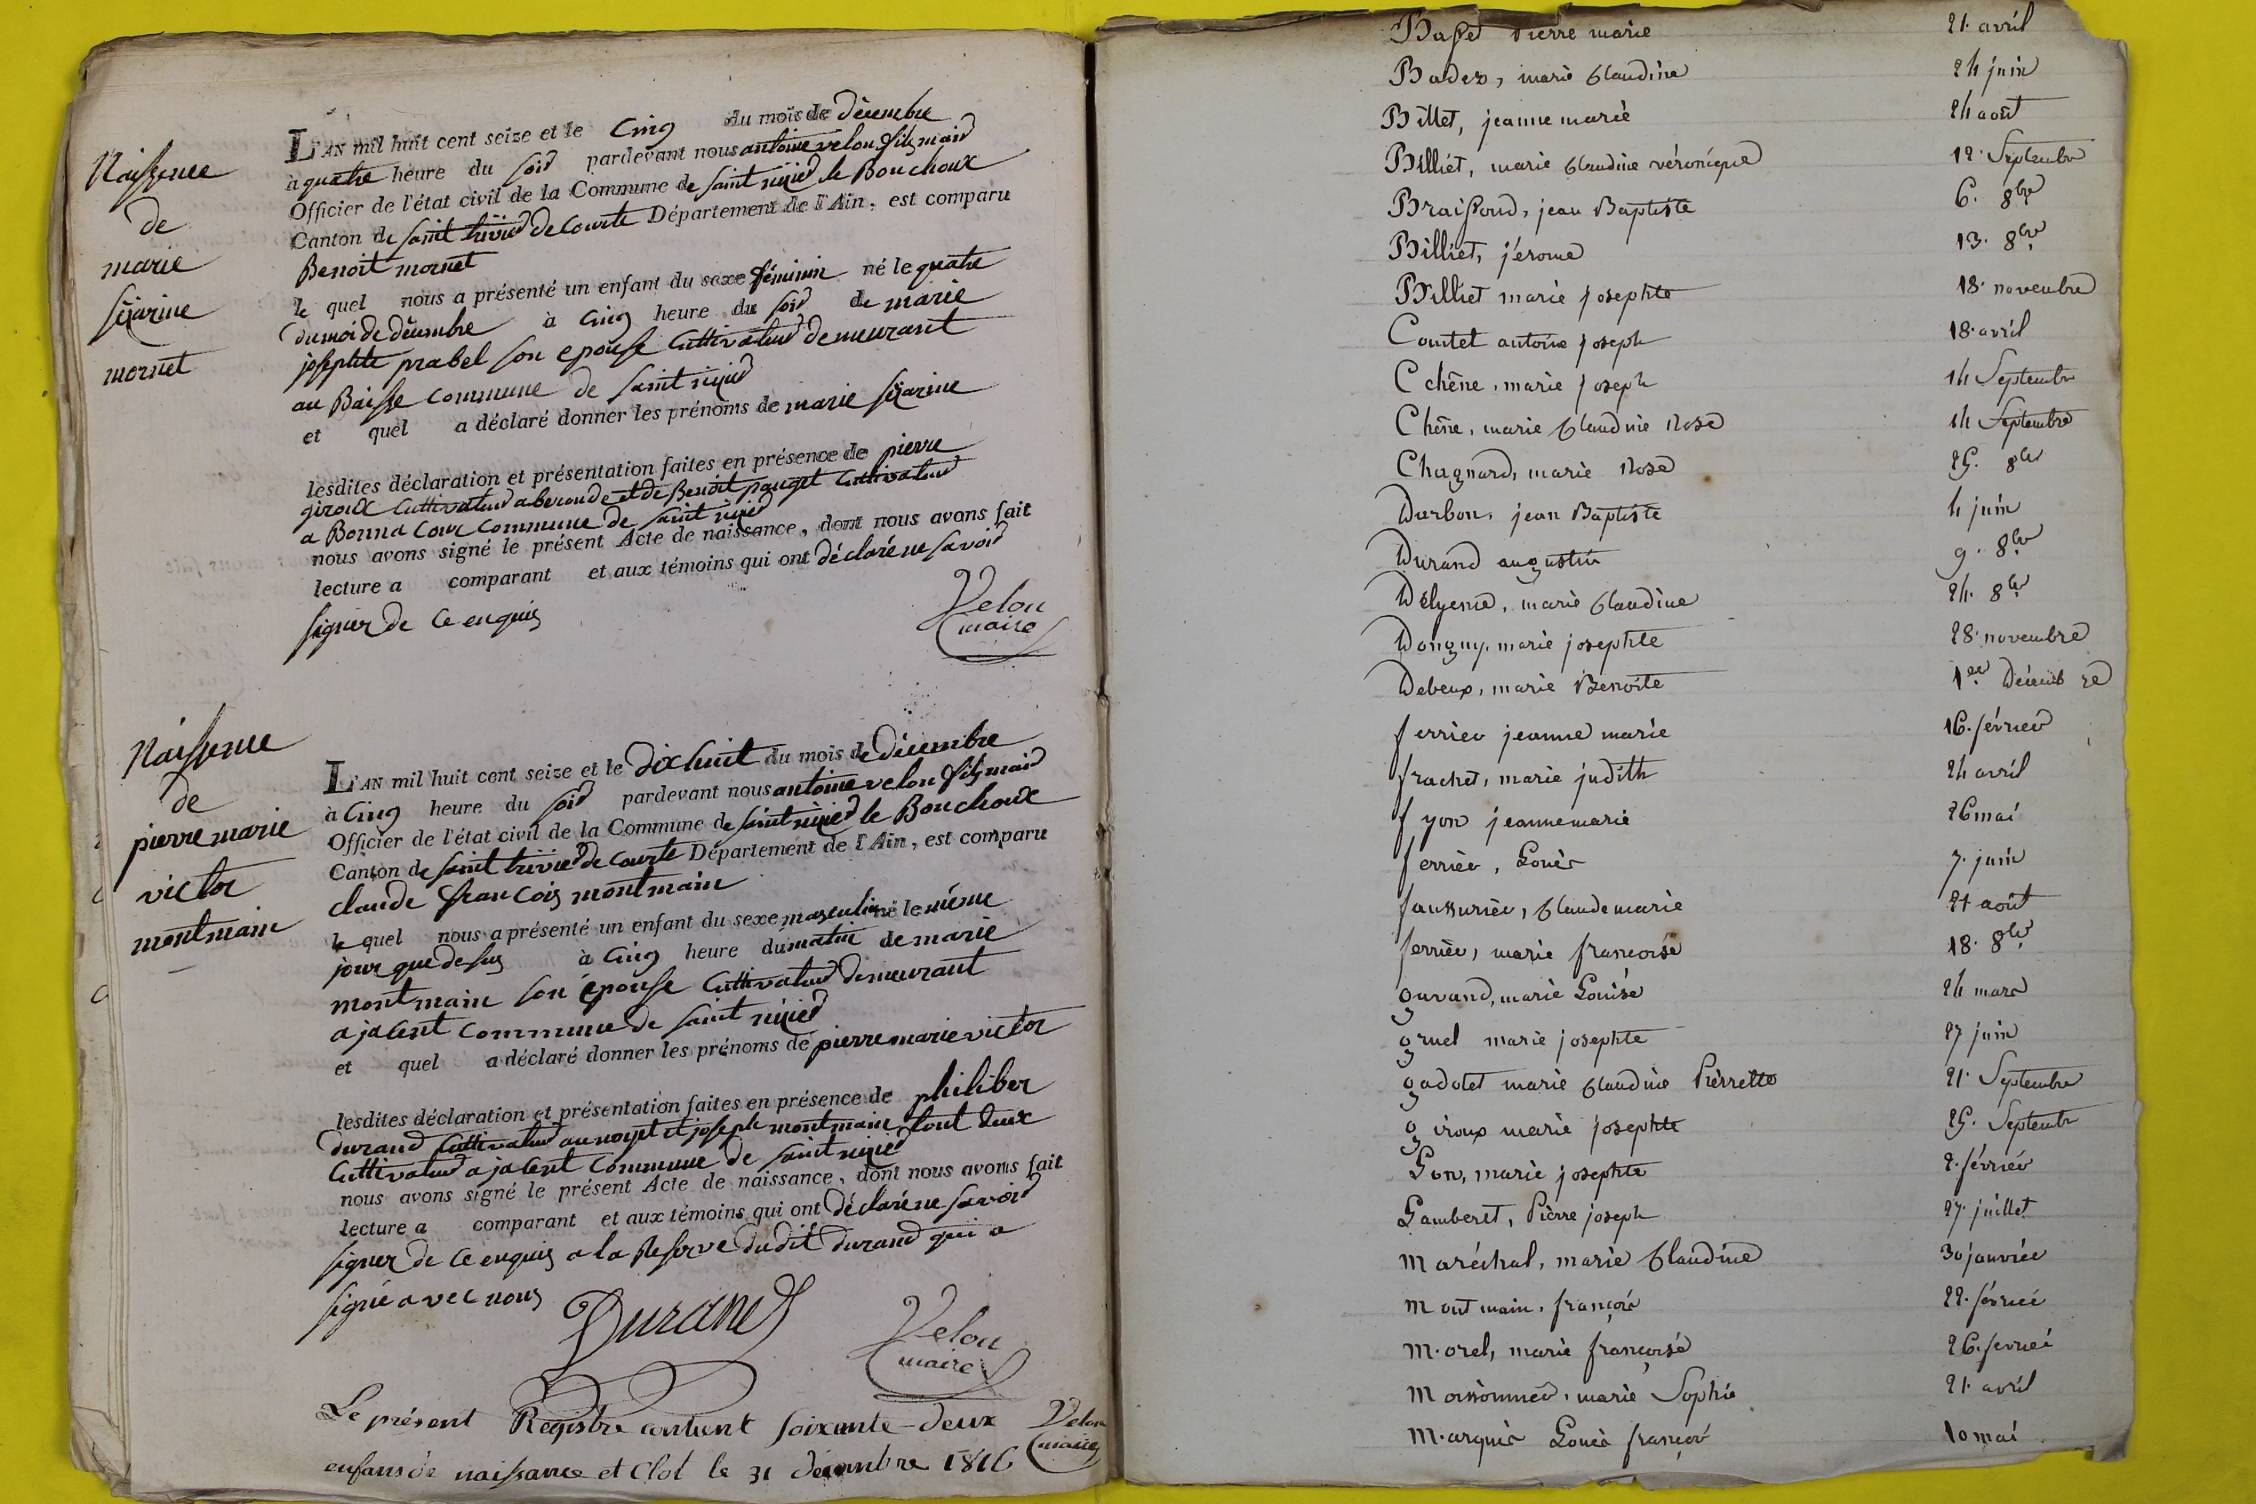 Naissence
de
marie
sézarine
mornet
L'AN mil huit cent seize et le Cinq du mois de décembre
à quatre heure du soir pardevant nous antoine velon fils maire
Officier de l'état civil de la Commune de saint nizier le Bouchoux
Canton de saint trivier de Courte Département de l'Ain, est comparu
Benoit mornet
le quel nous a présenté un enfant du sexe féminin né le quatre
du moi de décembre à Cinq heure du soir de marie
josephte prabel son epouse Cultivateur demeurant
au Baisse Commune de saint nizier
et quel a déclaré donner les prénoms de marie sézarine
lesdites déclaration et présentation faites en présence de pierre
giroux Cultivateur a beronde et de Benoit pauget Cultivateur
a Bonna Cour Commune de saint nizier
nous avons signé le présent Acte de naissance, dont nous avons fait
lecture a comparant et aux témoins qui ont déclaré ne savoir
signer de Ce enquis
Velon
maire
Naissence
de
pierre marie
victor
montmain
L'AN mil huit cent seize et le dix huit du mois de décembre
à Cinq heure du soir pardevant nous antoine velon fils maire
Officier de l'état civil de la Commune de saint nizier le Bouchoux
Canton de saint trivier de Courte Département de l'Ain, est comparu
claude francois montmain
le quel nous a présenté un enfant du sexe masculin né le même
jour que desus à Cinq heure du matin de marie
montmain son épouse Cultivateur demeurant
a jasent Commune de saint nizier
et quel a déclaré donner les prénoms de pierre marie victor
lesdites déclaration et présentation faites en présence de philiber
durand Cultivateur au noyet et joseph montmain tout deux
Cultivateur a jasent Commune de saint nizier
nous avons signé le présent Acte de naissance, dont nous avons fait
lecture a comparant et aux témoins qui ont déclaré ne savoir
signer de Ce enquis a la Reserve dudit durand qui a
signé avec nous
Durand
Velon
maire
Le présent Registre contient soixante-deux
enfans de naissance et Clot le 31 décembre 1816
Velon
maire
Basset Pierre marie 21. avril
Badez, marie Claudine 24 juin
Billet, jeanne marie 24 août
Billiet, marie Claudine véronique 12. Septembre
Braissoud, jean Baptiste 6. 8bre
Billiet, jérome 13. 8bre
Billiet marie josephte 18. novembre
Comtet antoine joseph 18. avril
Cchêne, marie joseph 14 Septembre
Chêne, marie Claudine Rose 14 Septembre
Chagnard, marie Rose 25. 8bre
Darbon, jean Baptiste 4 juin
Durand augustin 9. 8bre
Délyenne, marie Claudine 24. 8bre
Donguy, marie josephte 28. novembre
Debeux, marie Benoite 1er Décembre
ferrier jeanne marie 16. février
frachet, marie judith 24 avril
fyon jeanne marie 26 mai
ferrier, Louis 7. juin
faussurier, Claude marie 21 août
ferrier, marie françoise 18. 8bre
guvand, marie Louise 24 mars
gruel marie josephte 27 juin
gadolet marie Claudine Pierrette 21. Septembre
giroux marie josephte 25. Septembre
Lon, marie josephte 2. février
Lamberet, Pierre joseph 27. juillet
Maréchal, marie Claudine 30 janvier
Montmain, françois 22. février
M.orel, marie françoise 26. fevrier
Moissonnier, marie Sophie 21. avril
M.arquis Louis françois 10 mai